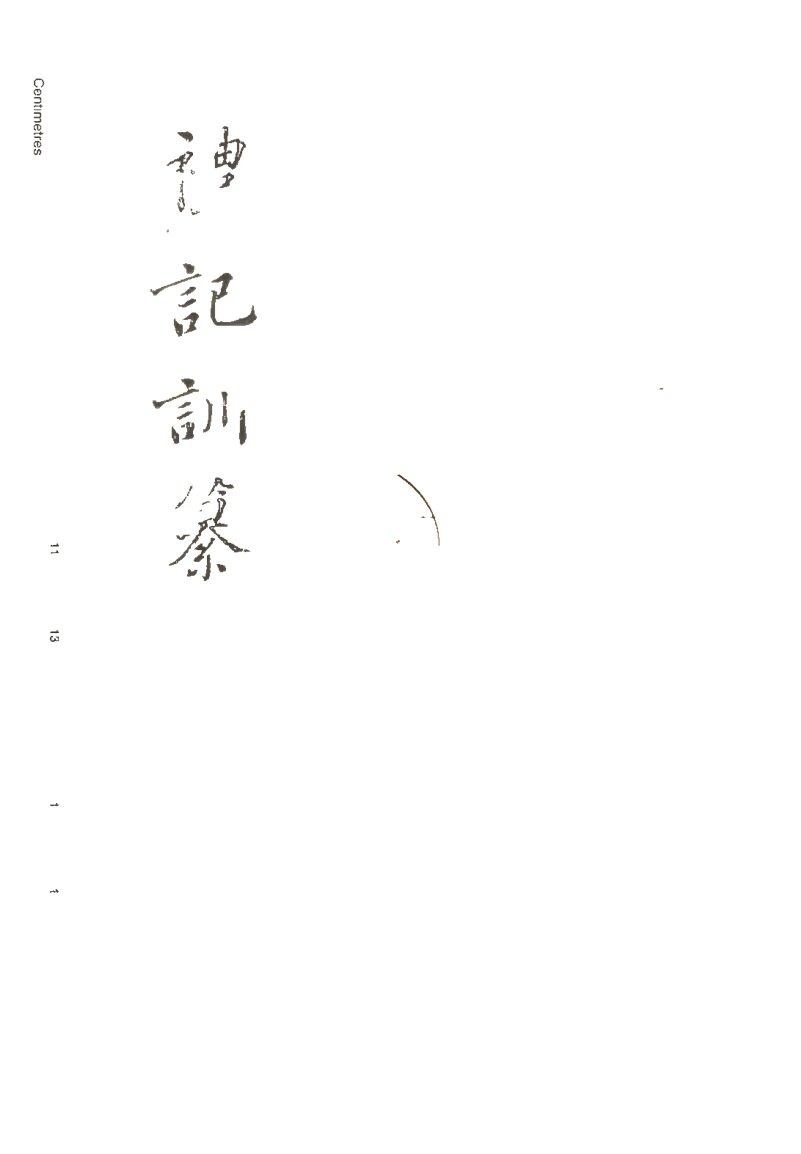 禮記訓纂
Centimetres
11
13
1
1